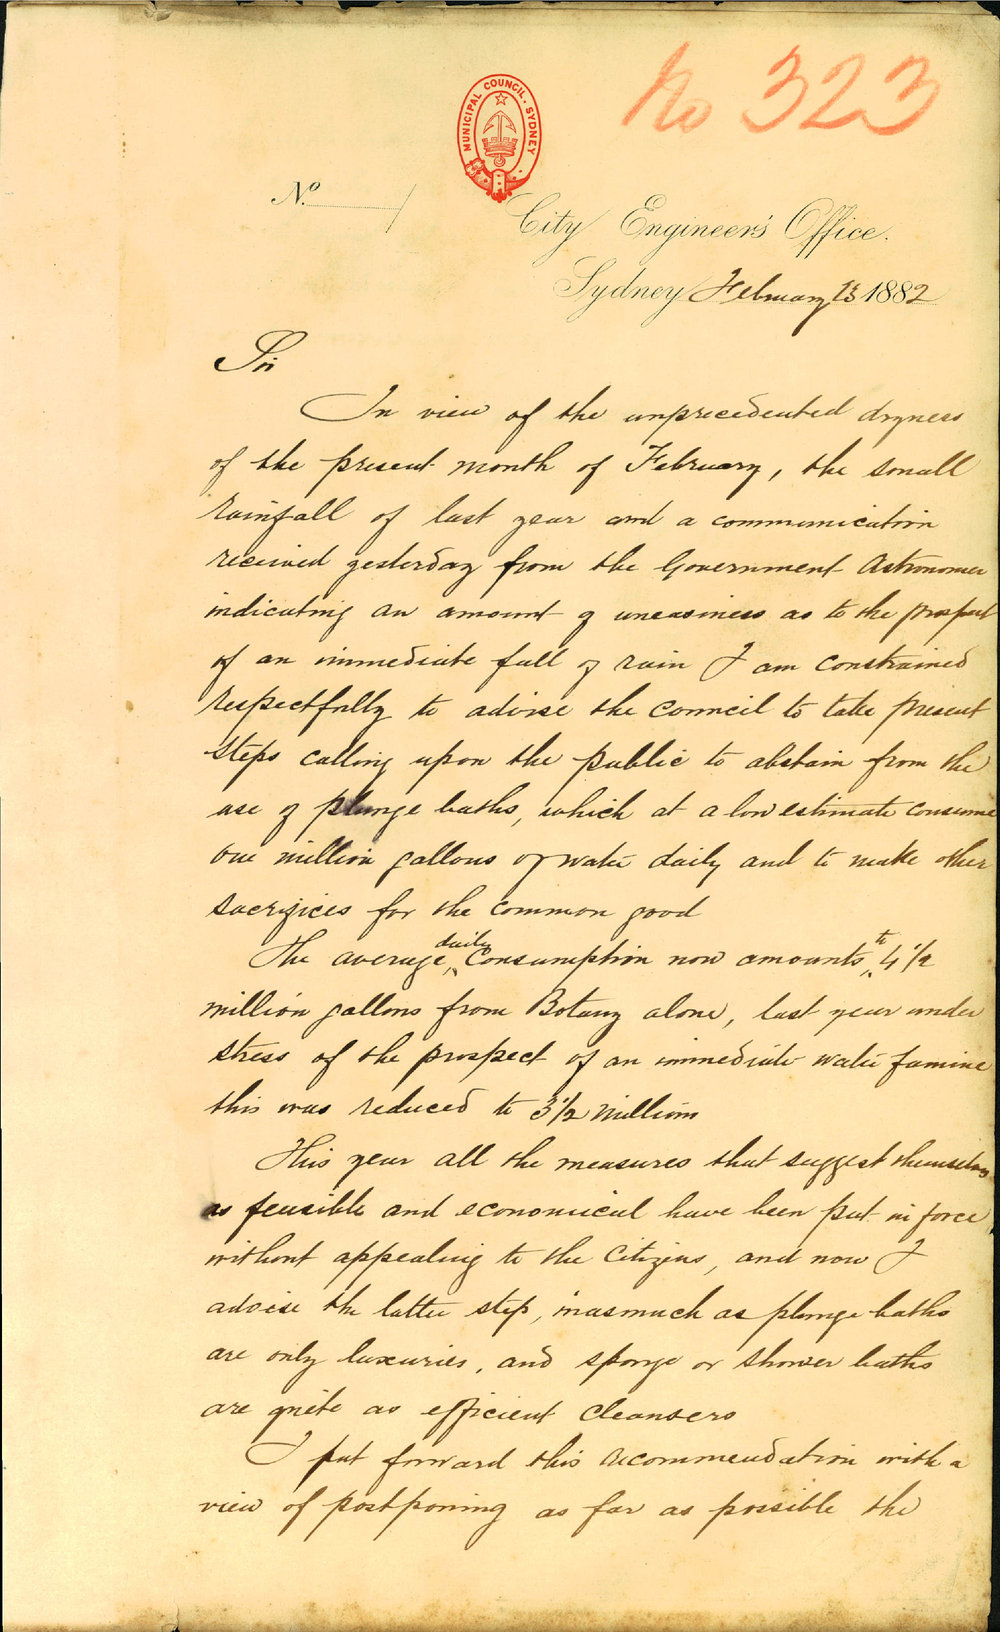 No 323
MUNICIPAL COUNCIL. SYDNEY
No. /
City Engineer's Office.
Sydney February 13 1882
Sir
In view of the unprecedented dryness
of the present month of February, the small
rainfall of last year and a communication
received yesterday from the Government Astronomer
indicating an amount of uneasiness as to the prospect
of an immediate fall of rain I am constrained
respectfully to advise the Council to take present
steps calling upon the public to abstain from the
use of plunge baths, which at a low estimate consume
one million gallons of water daily and to make other
sacrifices for the common good
The average daily Consumption now amounts to 4 1/2
million gallons from Botany alone, last year under
stress of the prospect of an immediate water famine
this was reduced to 3 1/2 million
This year all the measures that suggest themselves
as feasible and economical have been put in force
without appealing to the Citizens, and now I
advise the latter step, inasmuch as plunge baths
are only luxuries, and sponge or shower baths
are quite as efficient cleansers
I put forward this recommendation with a
view of postponing as far as possible the